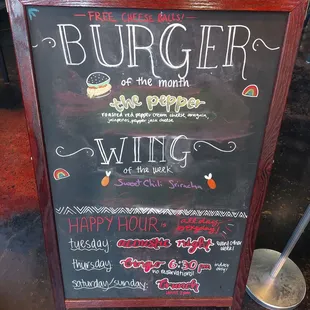 FREE CHEESE BALLS!
BURGER
of the month
the pepper
roasted red pepper cream cheese, arugula,
jalapeños, pepper jack cheese
WING
of the week
Sweet Chili Sriracha
HAPPY HOUR
tuesday acoustic night
thursday bingo 6:30 pm
no reservations!
saturday/sunday: brunch